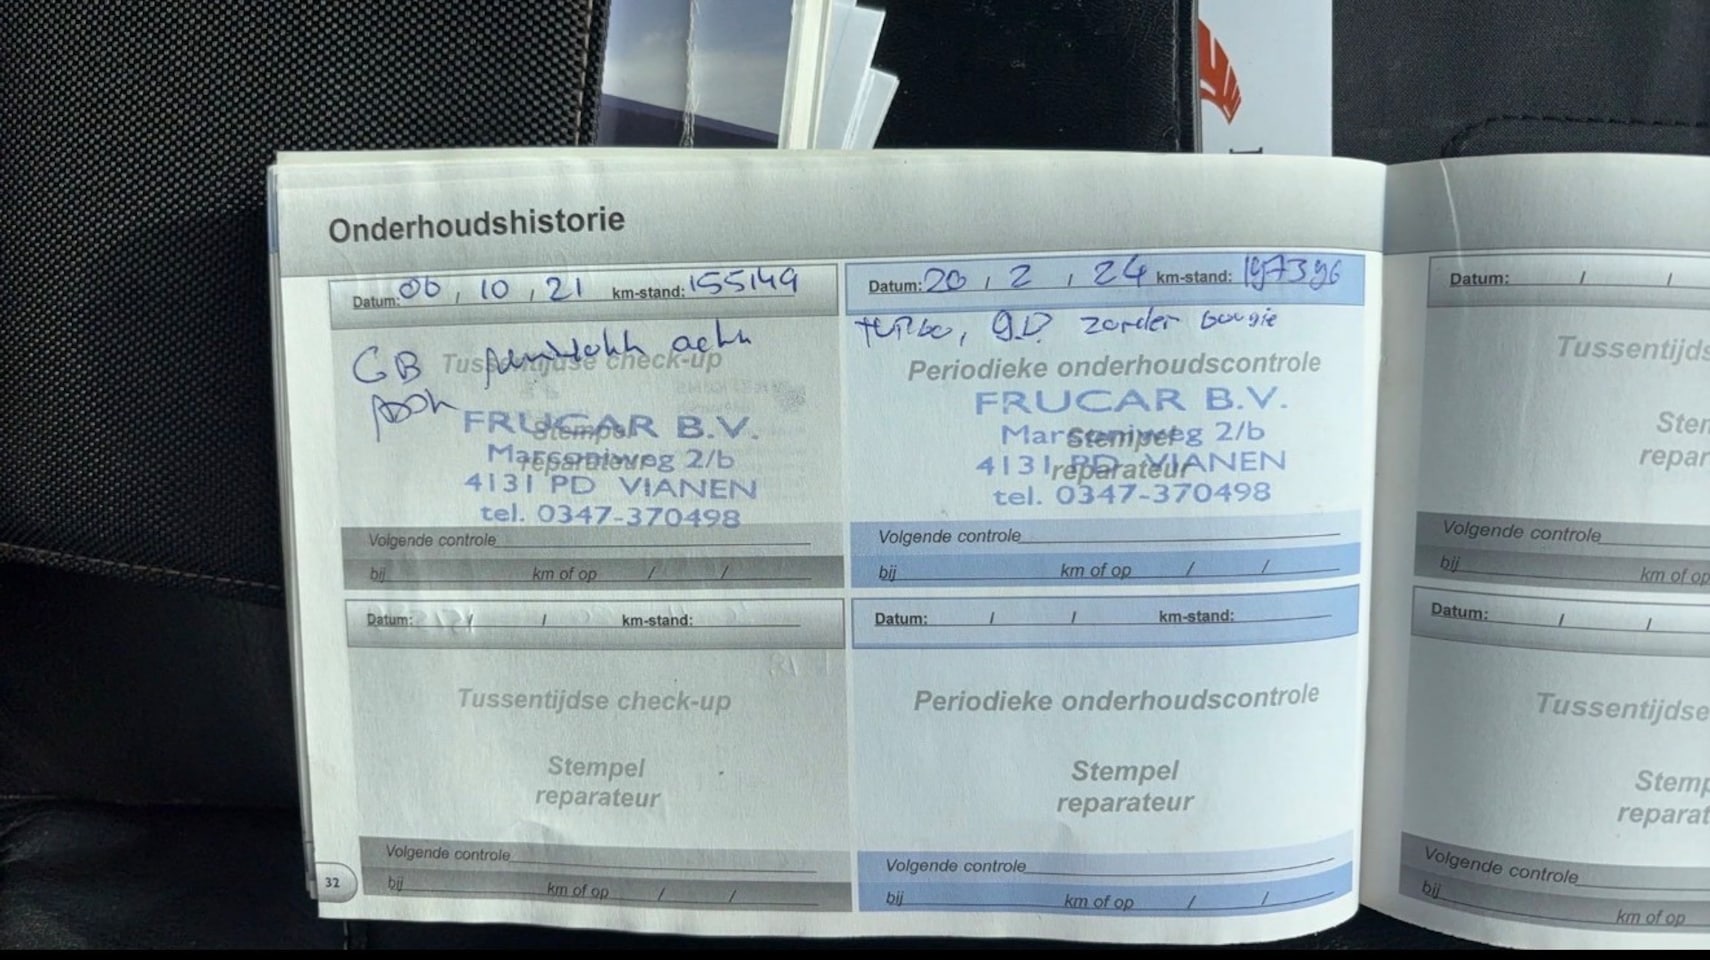 Onderhoudshistorie
Datum: 06 / 10 / 21 km-stand: 155149
GB achter
Tussentijdse check-up
Stempel
reparateur
FRUCAR B.V.
Marconiweg 2/b
4131 PD VIANEN
tel. 0347-370498
Volgende controle
bij km of op / /
Datum: 20 / 2 / 24 km-stand: 197396
turbo, g.D. zonder bougie
Periodieke onderhoudscontrole
Stempel
reparateur
FRUCAR B.V.
Marconiweg 2/b
4131 PD VIANEN
tel. 0347-370498
Volgende controle
bij km of op / /
Datum: / / km-stand:
Tussentijdse check-up
Stempel
reparateur
Volgende controle
bij km of op / /
32
Datum: / / km-stand:
Periodieke onderhoudscontrole
Stempel
reparateur
Volgende controle
bij km of op / /
Datum: / /
Tussentijds
Stem
repar
Volgende controle
bij km of op
Datum: / /
Tussentijdse
Stemp
reparat
Volgende controle
bij km of op